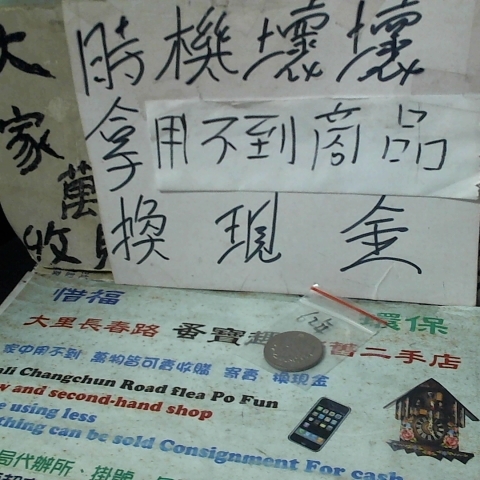 大
家
萬
收
時機壞壞
拿用不到商品
換現金
惜福 環保
大里長春路 蚤寶 舊二手店
家中用不到 萬物皆可寄收購 寄賣 換現金
ali Changchun Road flea Po Fun
w and second-hand shop
e using less
thing can be sold Consignment For cash
局代辦所、掛號